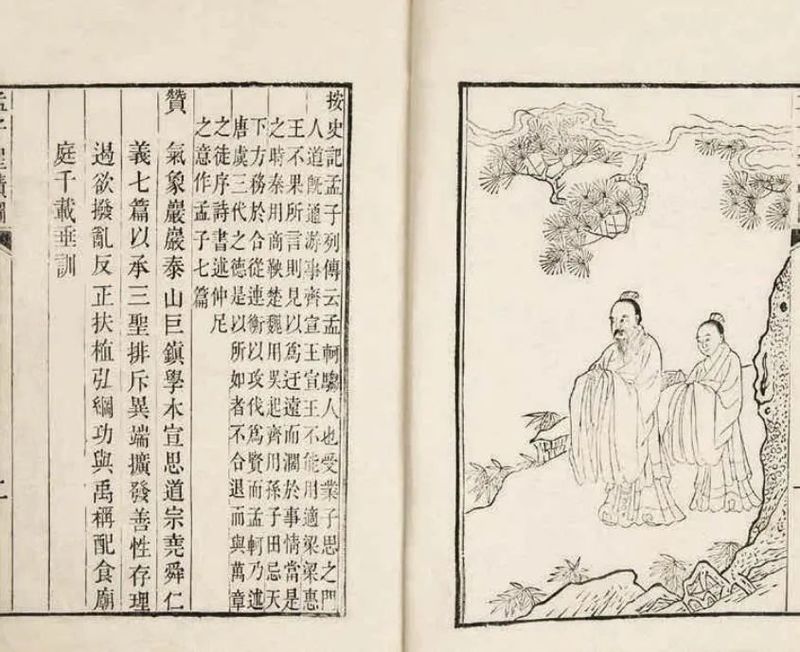 按史記孟子列傳云孟軻騶人也受業子思之門
人道旣通游事齊宣王宣王不能用適梁梁惠
王不果所言則見以爲迂遠而濶於事情當是
之時秦用商鞅楚魏用吳起齊用孫子田忌天
下方務於合從連衡以攻伐爲賢而孟軻乃述
唐虞三代之德是以所如者不合退而與萬章
之徒序詩書述仲尼
之意作孟子七篇
贊 氣象巖巖泰山巨鎮學本宣思道宗堯舜仁
義七篇以承三聖排斥異端擴發善性存理
遏欲撥亂反正扶植弘綱功與禹稱配食廟
庭千載垂訓
孟子聖蹟圖